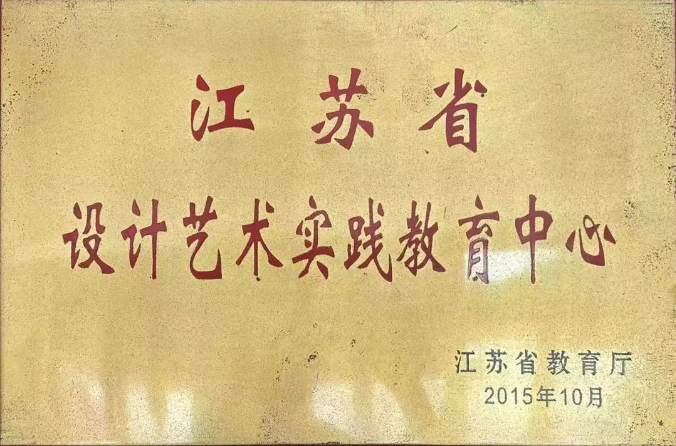 江苏省
设计艺术实践教育中心
江苏省教育厅
2015年10月